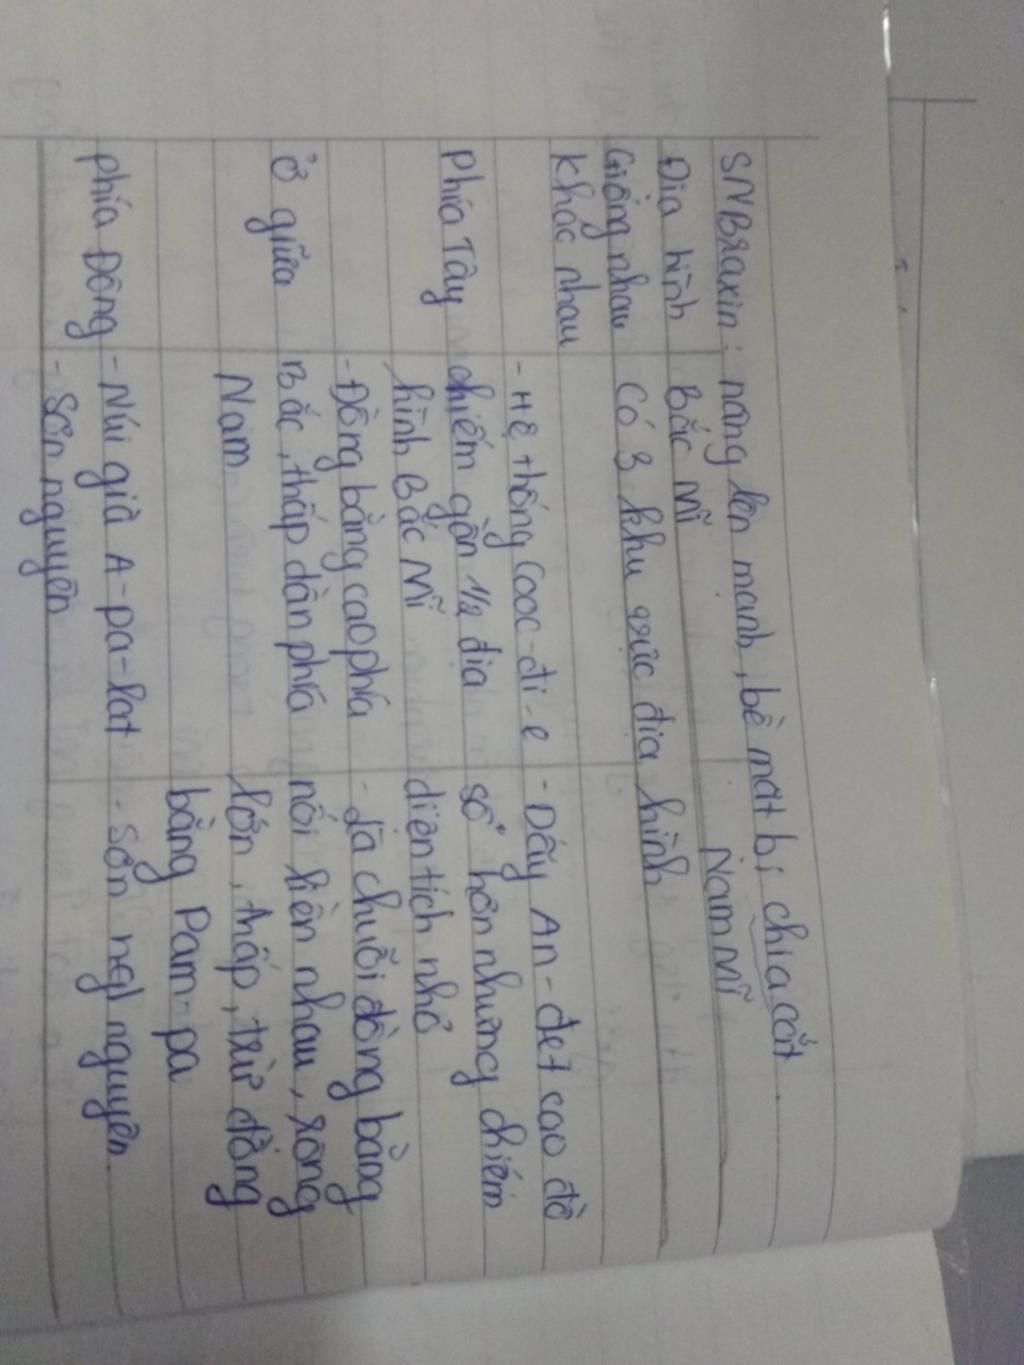 SNBraxin: nâng lên mạnh, bề mặt bị chia cắt.
Địa hình Bắc Mĩ Nam Mĩ
Giống nhau Có 3 khu vực địa hình
Khác nhau
- Hệ thống Cooc-đi-e - Dãy An-đet cao đồ
Phía Tây chiếm gần 1/2 địa sộ hơn nhưng chiếm
hình Bắc Mĩ diện tích nhỏ
- Đồng bằng cao phía - Là chuỗi đồng bằng
Ở giữa Bắc, thấp dần phía nối liền nhau, rộng
Nam lớn, thấp, trừ đồng
bằng Pam-pa
Phía Đông - Núi già A-pa-lat - Sơn nguyên
- Sơn nguyên